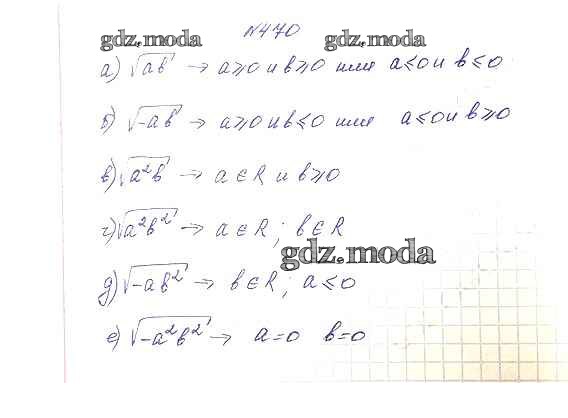 №470
gdz.moda gdz.moda
а) √ab → a⩾0 и b⩾0 или a≤0 и b≤0
б) √-ab → a⩾0 и b≤0 или a≤0 и b⩾0
в) √a²b → a∈R и b⩾0
г) √a²b² → a∈R; b∈R
gdz.moda
д) √-ab² → b∈R; a≤0
е) √-a²b² → a=0 b=0